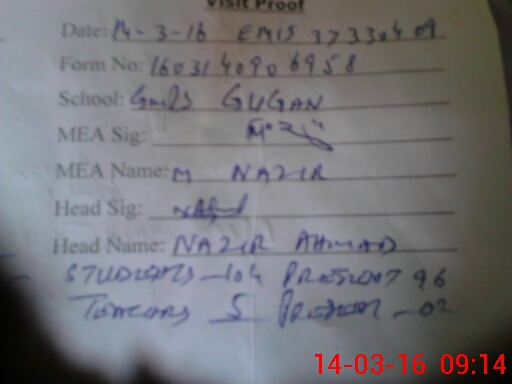 Visit Proof
Date: 14-3-16 EMIS 37330409
Form No: 1603140906958
School: GMPS GUGAN
MEA Sig:
MEA Name: M NAZIR
Head Sig:
Head Name: NAZIR AHMAD
STUDENTS - 104 PRESENT 96
TEACHERS 5 PRESENT - 02
14-03-16 09:14